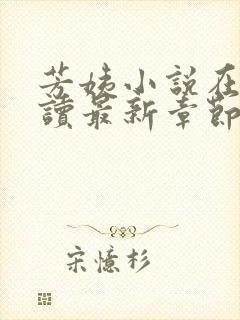 芳姨小說在
讀最新章節
宋憶杉